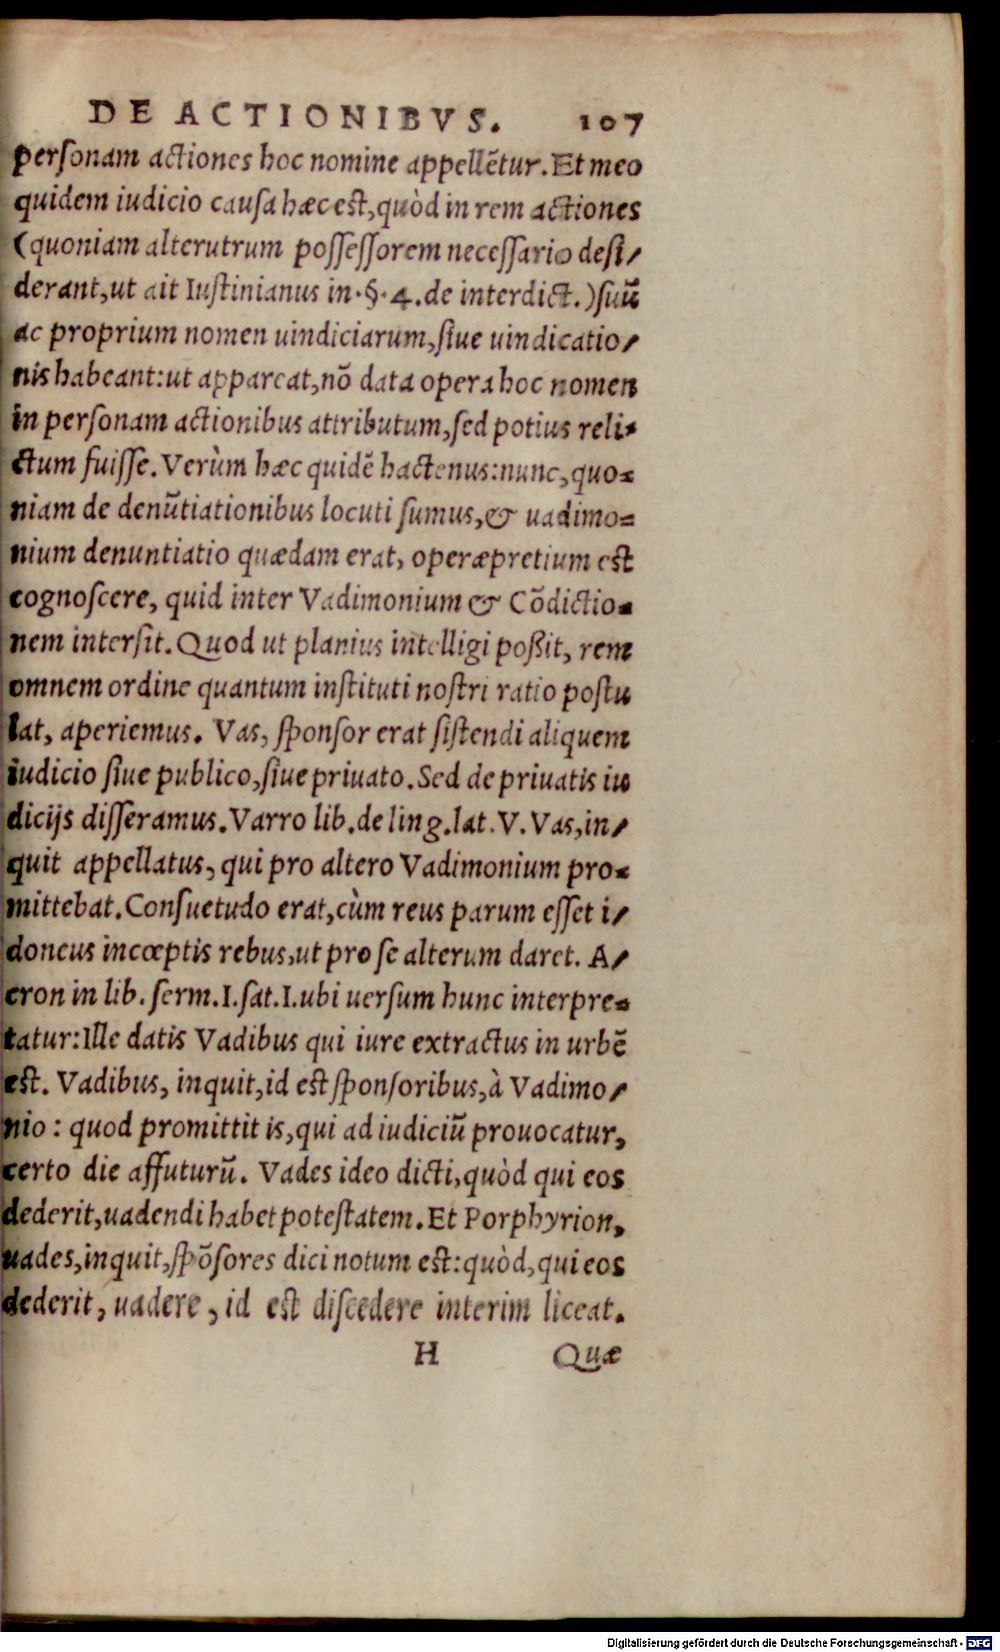 DE ACTIONIBVS. 107
personam actiones hoc nomine appellētur. Et meo
quidem iudicio causa hæc est, quòd in rem actiones
(quoniam alterutrum possessorem necessario desi/
derant, ut ait Iustinianus in .§. 4. de interdict.) suū
ac proprium nomen uindiciarum, siue uindicatio/
nis habeant: ut appareat, nō data opera hoc nomen
in personam actionibus attributum, sed potius reli/
ctum fuisse. Verùm hæc quidē hactenus: nunc, quo=
niam de denūtiationibus locuti sumus, & uadimo=
nium denuntiatio quædam erat, operæpretium est
cognoscere, quid inter Vadimonium & Cōdictio=
nem intersit. Quod ut planius intelligi poßit, rem
omnem ordine quantum instituti nostri ratio postu
lat, aperiemus. Vas, sponsor erat sistendi aliquem
iudicio siue publico, siue priuato. Sed de priuatis iu
dicijs disseramus. Varro lib. de ling. lat. V. Vas, in/
quit appellatus, qui pro altero Vadimonium pro=
mittebat. Consuetudo erat, cùm reus parum esset i/
doneus incœptis rebus, ut pro se alterum daret. A/
cron in lib. serm. I. sat. I. ubi uersum hunc interpre=
tatur: Ille datis Vadibus qui iure extractus in urbē
est. Vadibus, inquit, id est sponsoribus, à Vadimo/
nio: quod promittit is, qui ad iudiciū prouocatur,
certo die affuturū. Vades ideo dicti, quòd qui eos
dederit, uadendi habet potestatem. Et Porphyrion,
uades, inquit, spōsores dici notum est: quòd, qui eos
dederit, uadere, id est discedere interim liceat.
H Quæ
Digitalisierung gefördert durch die Deutsche Forschungsgemeinschaft - DFG